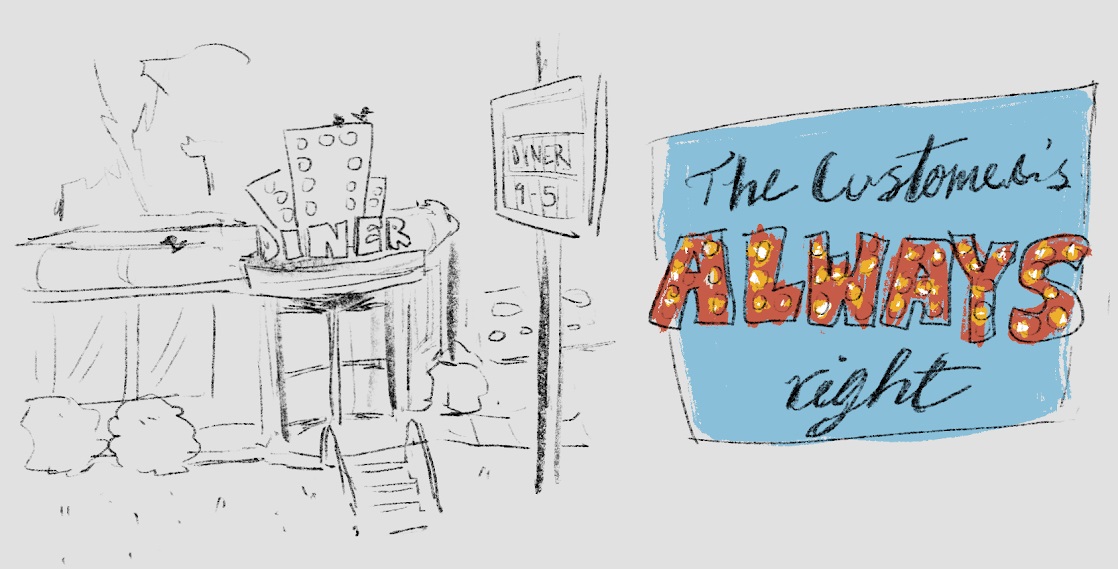 DINER
DINER
9-5
The Customer is
ALWAYS
right